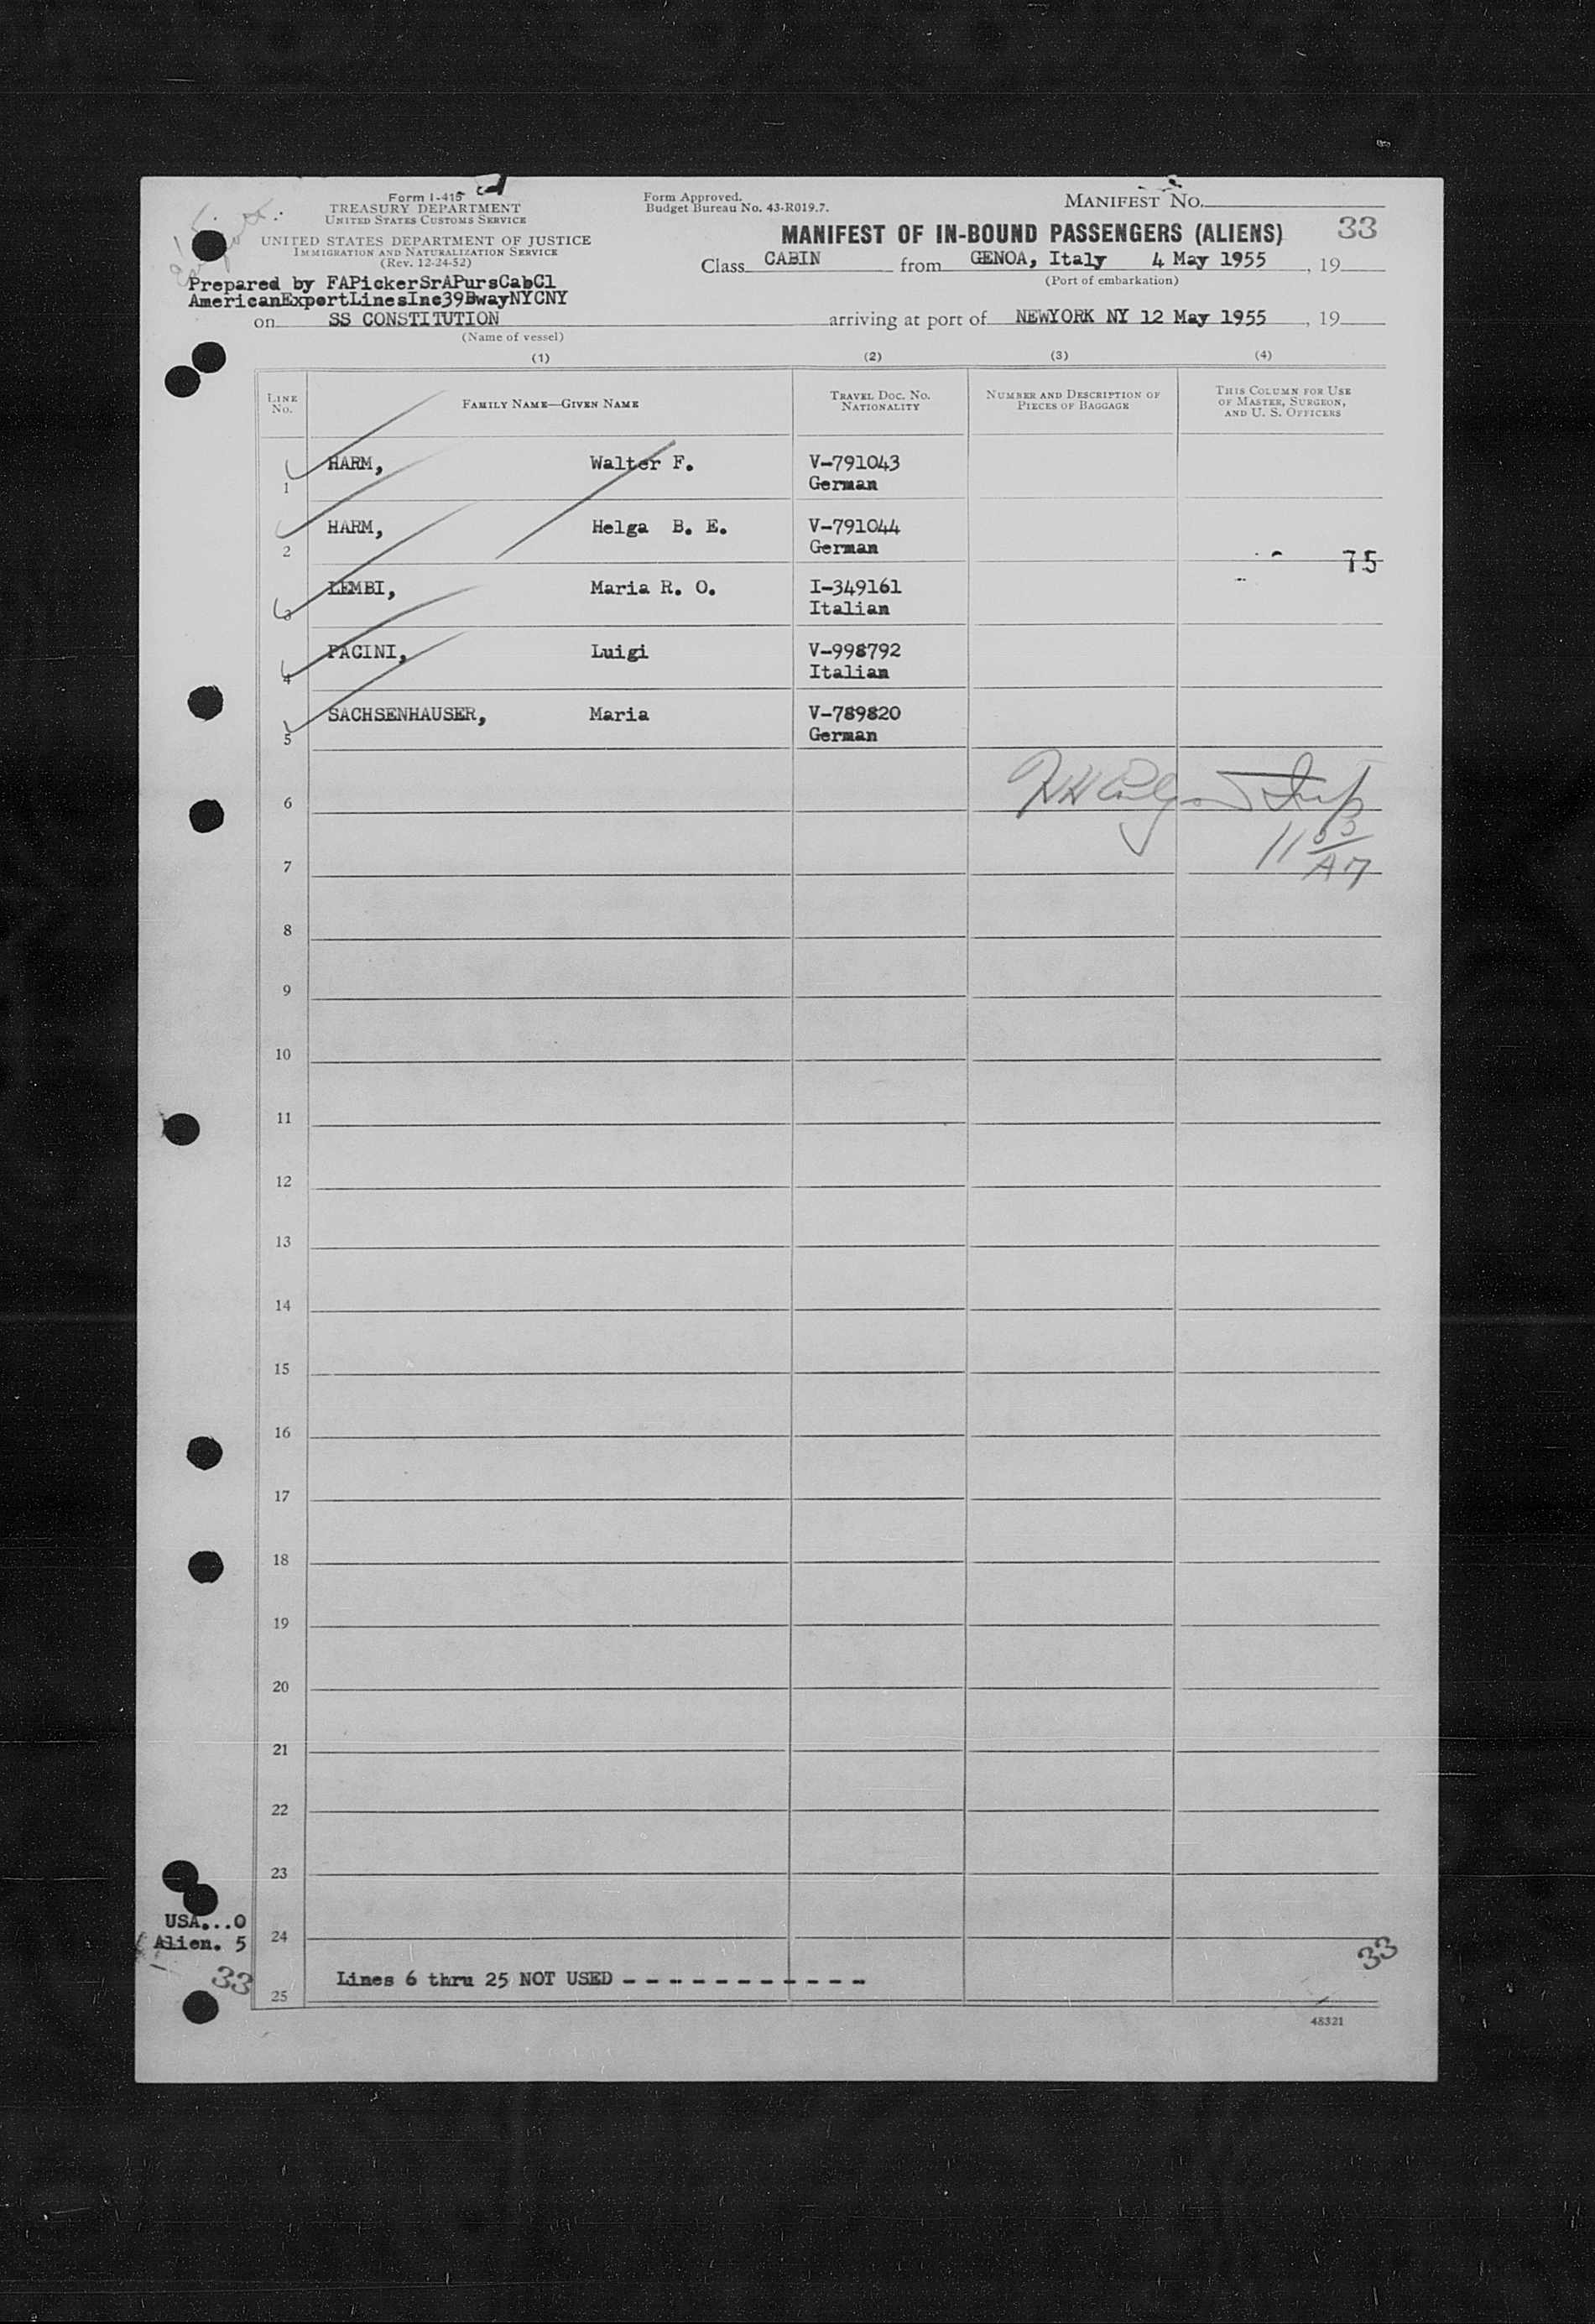 Form I-415
TREASURY DEPARTMENT
UNITED STATES CUSTOMS SERVICE
UNITED STATES DEPARTMENT OF JUSTICE
IMMIGRATION AND NATURALIZATION SERVICE
(Rev. 12-24-52)
Form Approved.
Budget Bureau No. 43-R019.7.
MANIFEST NO.
MANIFEST OF IN-BOUND PASSENGERS (ALIENS)
33
Class CABIN from GENOA, Italy 4 May 1955, 19
(Port of embarkation)
Prepared by FAPickerSrAPursCabCl
AmericanExportLinesInc39BwayNYCNY
on SS CONSTITUTION arriving at port of NEWYORK NY 12 May 1955, 19
(Name of vessel)
(1) (2) (3) (4)
LINE No. FAMILY NAME—GIVEN NAME TRAVEL DOC. NO. NATIONALITY NUMBER AND DESCRIPTION OF PIECES OF BAGGAGE THIS COLUMN FOR USE OF MASTER, SURGEON, AND U. S. OFFICERS
1 HARM, Walter F. V-791043
German
2 HARM, Helga B. E. V-791044
German
75
3 LEMBI, Maria R. O. I-349161
Italian
4 PACINI, Luigi V-998792
Italian
5 SACHSENHAUSER, Maria V-789820
German
6
7
8
9
10
11
12
13
14
15
16
17
18
19
20
21
22
23
USA...0
Alien. 5
24
33
33
25 Lines 6 thru 25 NOT USED - - - - - - - - - - - -
48321